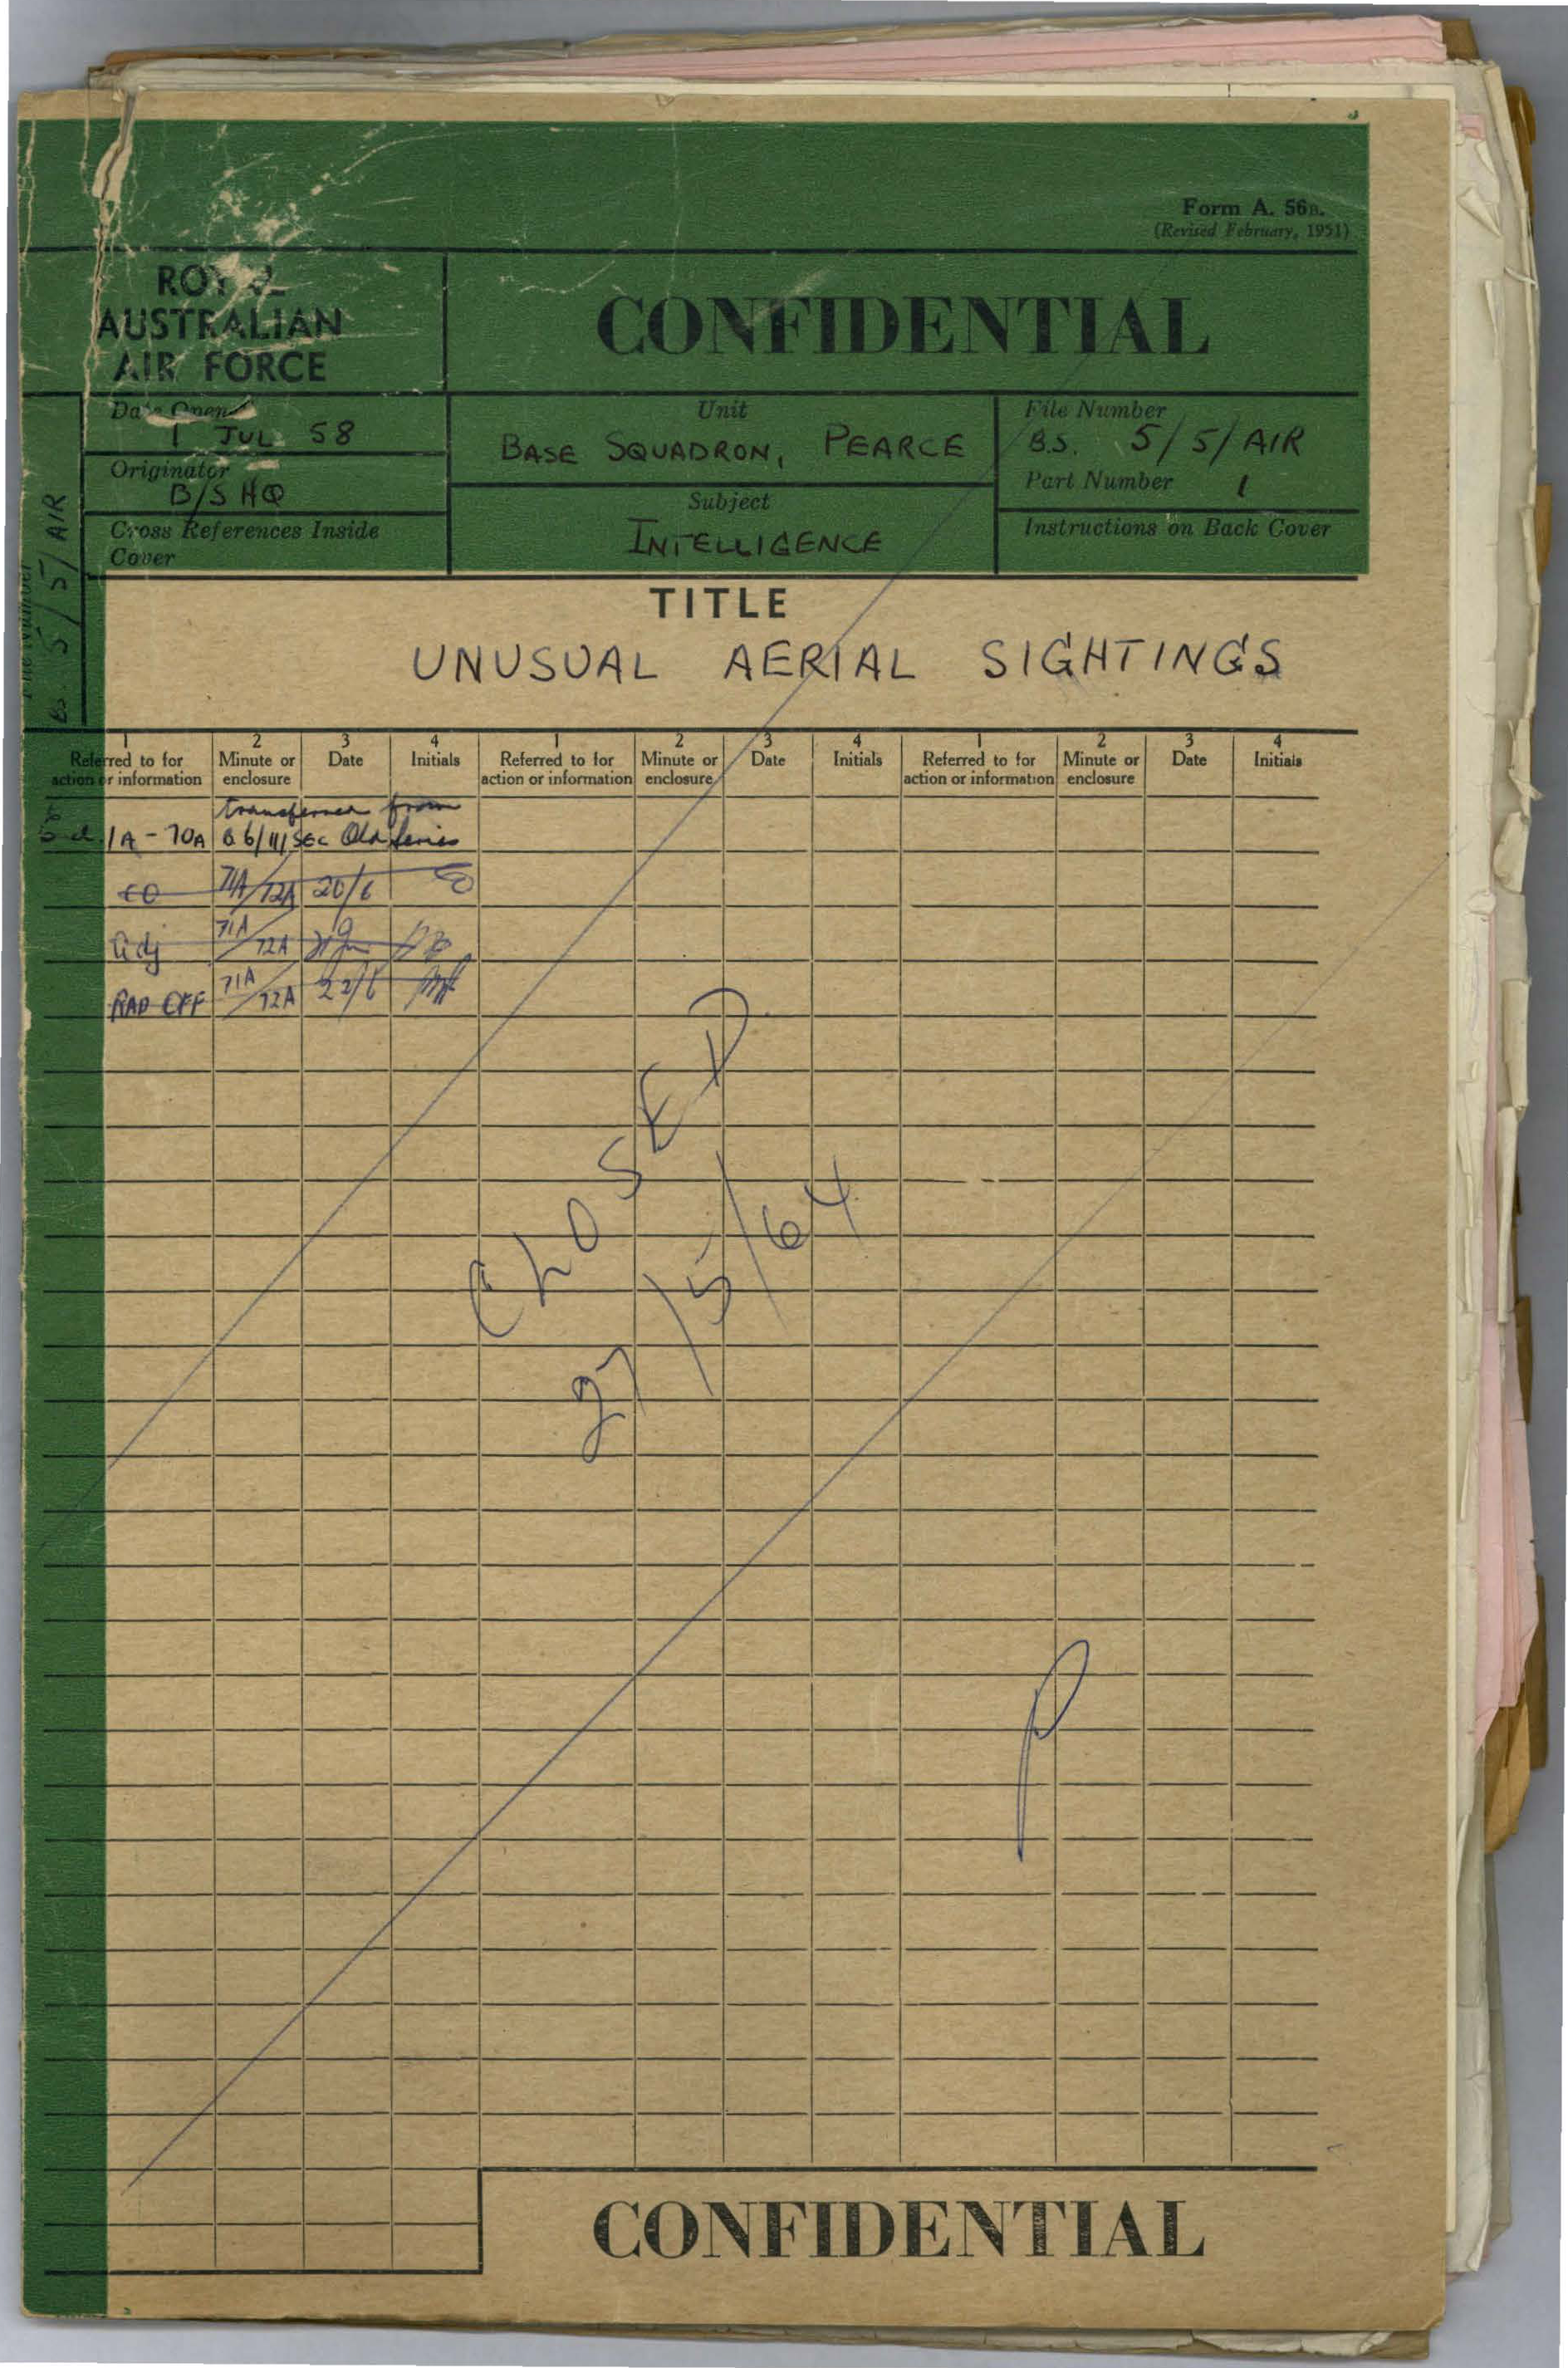 Form A. 56B.
(Revised February, 1951)
ROYAL
AUSTRALIAN
AIR FORCE
CONFIDENTIAL
Date Opened
1 JUL 58
Originator
B/S HQ
Cross References Inside
Cover
Unit
BASE SQUADRON, PEARCE
Subject
INTELLIGENCE
File Number
B.S. 5/5/AIR
Part Number 1
Instructions on Back Cover
File Number
BS. 5/5/AIR
TITLE
UNUSUAL AERIAL SIGHTINGS
1 2 3 4 1 2 3 4 1 2 3 4
Referred to for Minute or Date Initials Referred to for Minute or Date Initials Referred to for Minute or Date Initials
action or information enclosure action or information enclosure action or information enclosure
transferred from
1A - 70A B6/111/SEC Old Series
CO 71A/72A 20/6
Adj 71A/72A
RAD OFF 71A/72A 22/6
CLOSED
27/5/64
CONFIDENTIAL